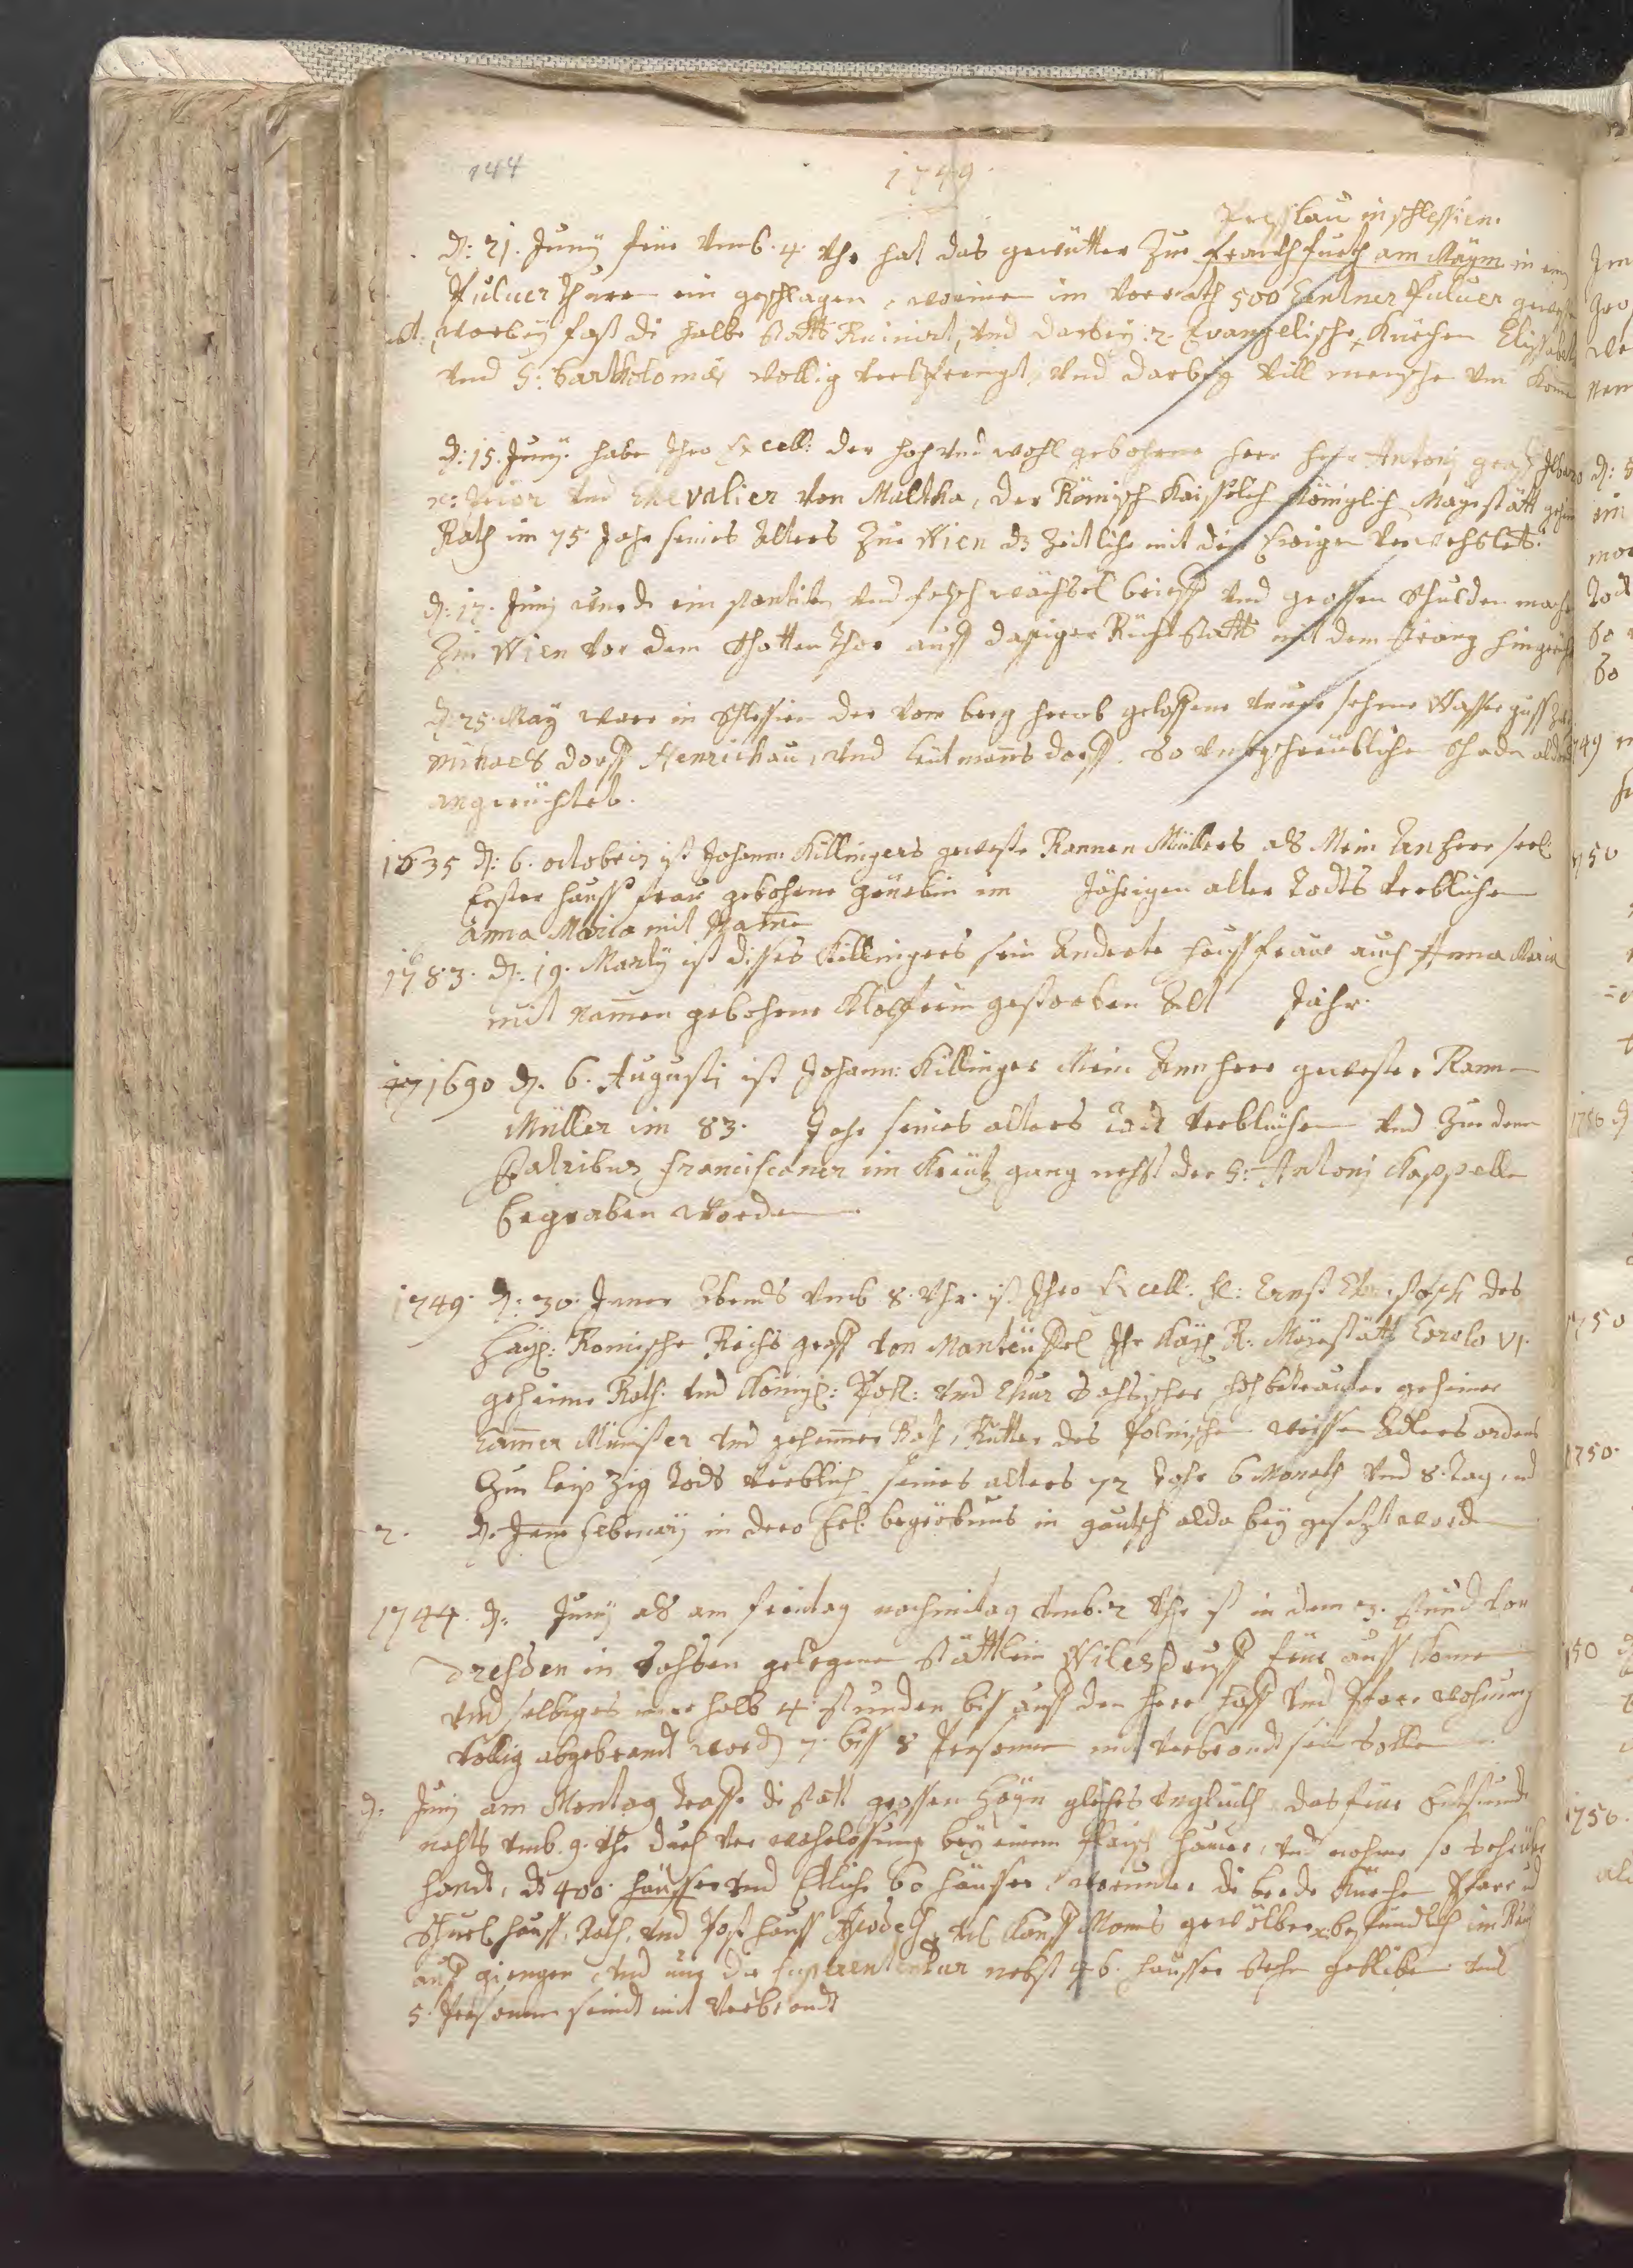 144
1749.
Presslau in schlessien.
d: 21. Junÿ früe vmb. 4. Vhr hat das gewütter Zue franckfurth am Maÿm in ein
Puluer thurn ein geschlagen, worinen im Vorrath 500 Centner Puluer gewest
worbeÿ fast di halbe Statt Ruinirt, vnd darbeÿ 2. Evangelische Kürchen Elisabeth
vnd S: Bartholomæ vollig versprengt, vnd darbeÿ vill mensche vm komen
d: 15. Junÿ. habe Ihro Excell: der hoch vnd wohl gebohrne Herr Herr Antonj graff
Prior vnd Chevalier von Maltha, der Römisch Kaisserlich Königlich Maÿestätt
Rath im 75. Jahr seines alters Zue Wien dz Zeitliche mit den Ewigen verwechslet.
d: 17. Junÿ wurde ein vnd falsch wächsel brieff vnd grossen Schulden macher
Zue Wien vor dem Schotten Thor auff dassiger Richt statt mit dem strang hingericht
d: 25. Maÿ ware in Schlessien der vom berg herab gelossene Wasser guss
Mihaels dorff Henrichau, vnd Leutmans dorff. so vnbeschreiblichen schaden
angerichtet.
1635 d: 6. octobris ist Johann Killingers geweste Rannen Müllers als Mein Anherr seel:
Erster hauss frau gebohrne im Jährigen alter Todts verblichen
Anna Maria mit Namen
1683. d: 19. Martÿ ist disses Killingers sein Anderte haussfraue auch Anna Maria
mit namen gebohrne gestorben Alt Jahr.
1690 d. 6. Augustj ist Johann: Killinger Mein Annherr gewester Rann
Müller im 83. Jahr seines alters Todt verblichen vnd Zue denen
Patribus franciscaner im Kreütz gang nechst der S: Antonj Kappelle
begraben worden
1749. d: 30. Janer Abends vmb 8. Vhr. ist Ihro Excell: H: Ernst Christoph des
Heÿl: Romische Reichs graff von Manteüffel Ihr Kaÿ: R: Maÿestätt Carolo VI.
geheime Rath. vnd Königl: Pohl: vnd Chur Sachsischer hochbetrauter geheimer
Camer Minister vnd geheimer Rath, Ritter des Polnischen weissen Adlers ordens
Zue leip Zig Tods verblich seines alters 72 Jahr 6 Monath vnd 8. Tag, vnd
2. d. Februarÿ in dero begräbnus in gautsch alda beÿ gesetzt worden
1744. d. Junÿ als am freÿtag nachmitag vmb. 2 Vhr ist in dem 3. stund von
Dresden in Sachsen gelegenen Stättlein Wilesdruff feür auss komen
vnd selbiges inner halb 4 stunden biss auff den vnd Pfarr wohnung
vollig abgebrandt worden 7. biss 8 Persohnen mit verbrandt sein sollen
d. Junÿ am Montag traffe di statt grossen Haÿn gleiches vnglück das feür Entstund
nachts vmb. 9. Vhr durch ver wahrlossung beÿ einem fleisch hauer, vnd nahme so
handt, dz 400. häusser vnd Etliche 60 häusser, worunter di beede Kürchen Pfarr vnd
Schuel hauss, Rath, vnd Post hauss gewölber im Rauch
auff giengen vnd nur die superentendur nebst 46. häusser stehen gebliben vnd
5. Persohnen seindt mit verbrandt